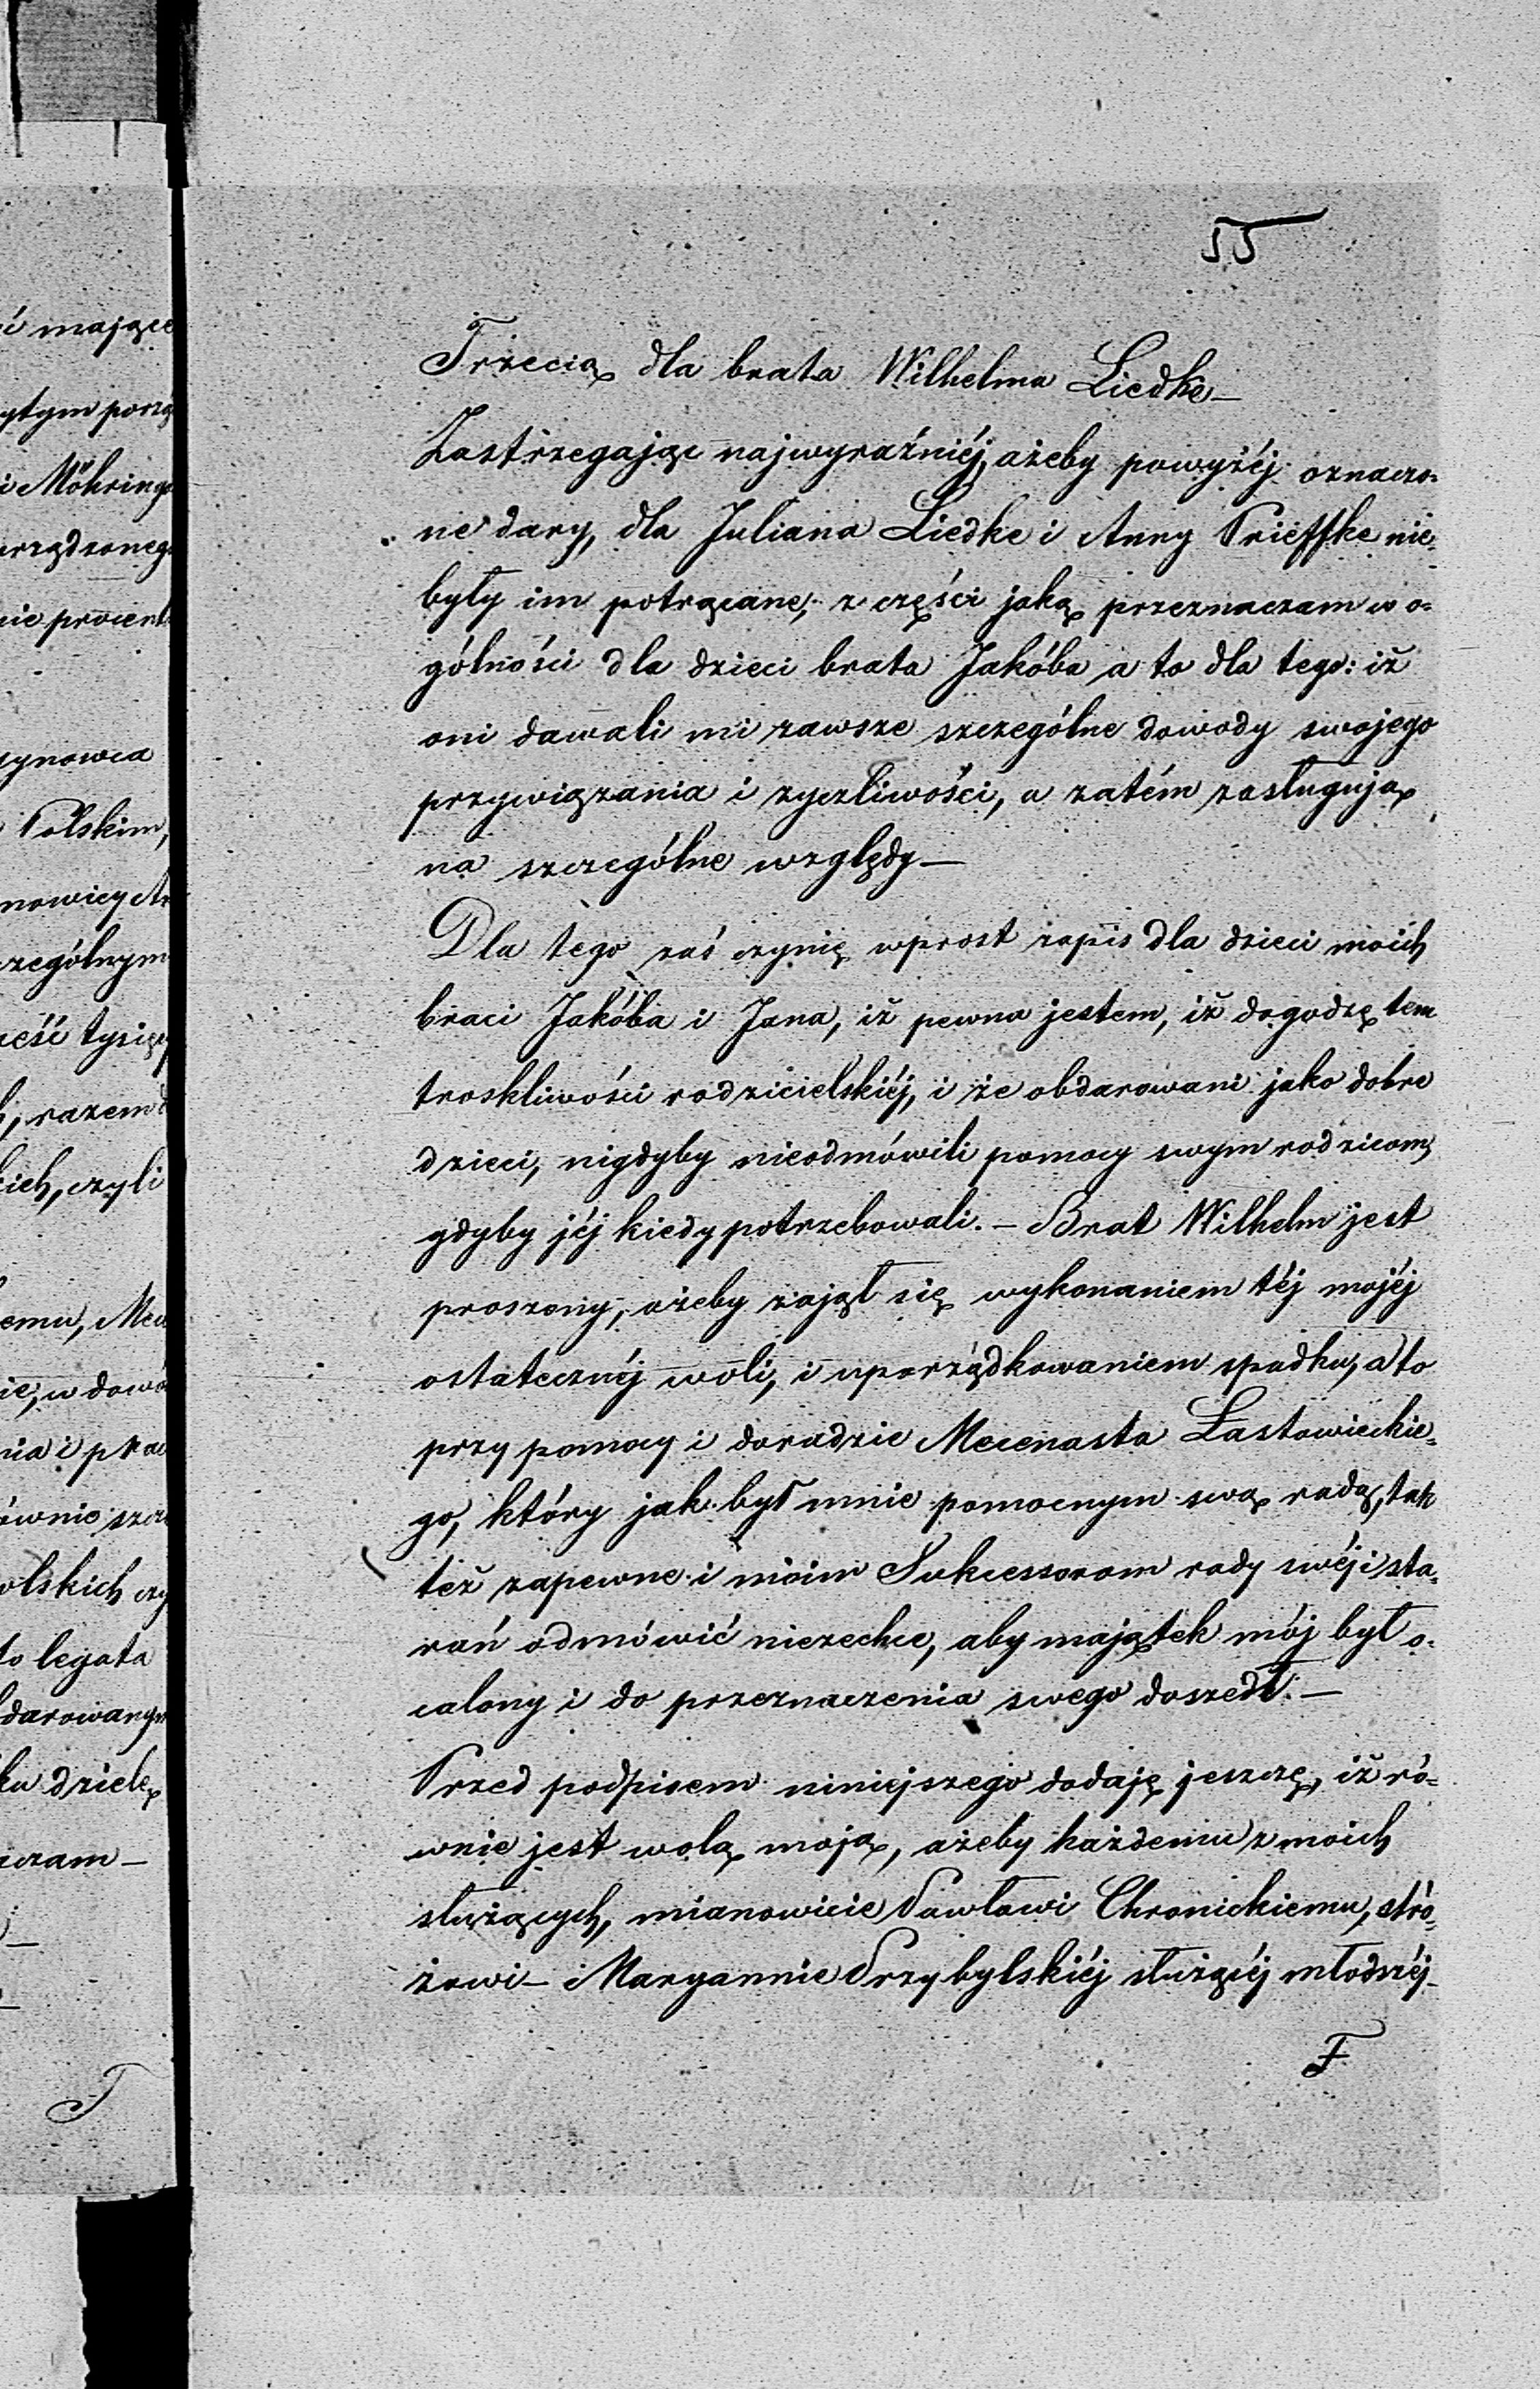 55
Trzecią dla brata Wilhelma Liedke —
Zastrzegając najwyraźniéj, ażeby powyżéj oznaczo=
ne dary, dla Juliana Liedke i Anny Prieffke nie=
były im potrącane, z części jaką przeznaczam w o=
gólności dla dzieci brata Jakóba a to dla tego: iż
oni dawali mi zawsze szczególne dowody swojego
przywiązania i życzliwości, a zatém zasługują
na szczególne względy —
Dla tego zaś czynię wprost zapis dla dzieci moich
braci Jakóba i Jana, iż pewna jestem, iż dogodzę tem
troskliwości rodzicielskiéj, i że obdarowani jako dobre
dzieci, nigdyby nieodmówili pomocy swym rodzicom,
gdyby jéj kiedy potrzebowali. — Brat Wilhelm jest
proszony, ażeby zajął się wykonaniem téj mojéj
ostatecznéj woli, i uporządkowaniem spadku, a to
przy pomocy i doradzie Mecenasta Łastowieckie=
go, który jak był mnie pomocnym swą radą, tak
też zapewne i moim Sukcessorom rady swéj i sta=
rań odmówić niezechce, aby majątek mój był o=
calony i do przeznaczenia swego doszedł. —
Przed podpisem niniejszego dodaję jeszczę, iż ró=
wnie jest wolą moją, ażeby każdemu z moich
służących, mianowicie Pawłowi Chronickiemu, stró=
żowi — Maryannie Przybylskiéj służącéj młodszéj —
ć mające
ytym porzą
i Möhringa
urządzoneg
cie procent
synowca
Polskim,
nowicy An
zególnym
ześć tysięcy
razem
kich, czyli
emu, Mec
ie, w dowó
nia i prac
ównie szcz
olskich czy
to legata
darowanym
ku dzielę
aczam —